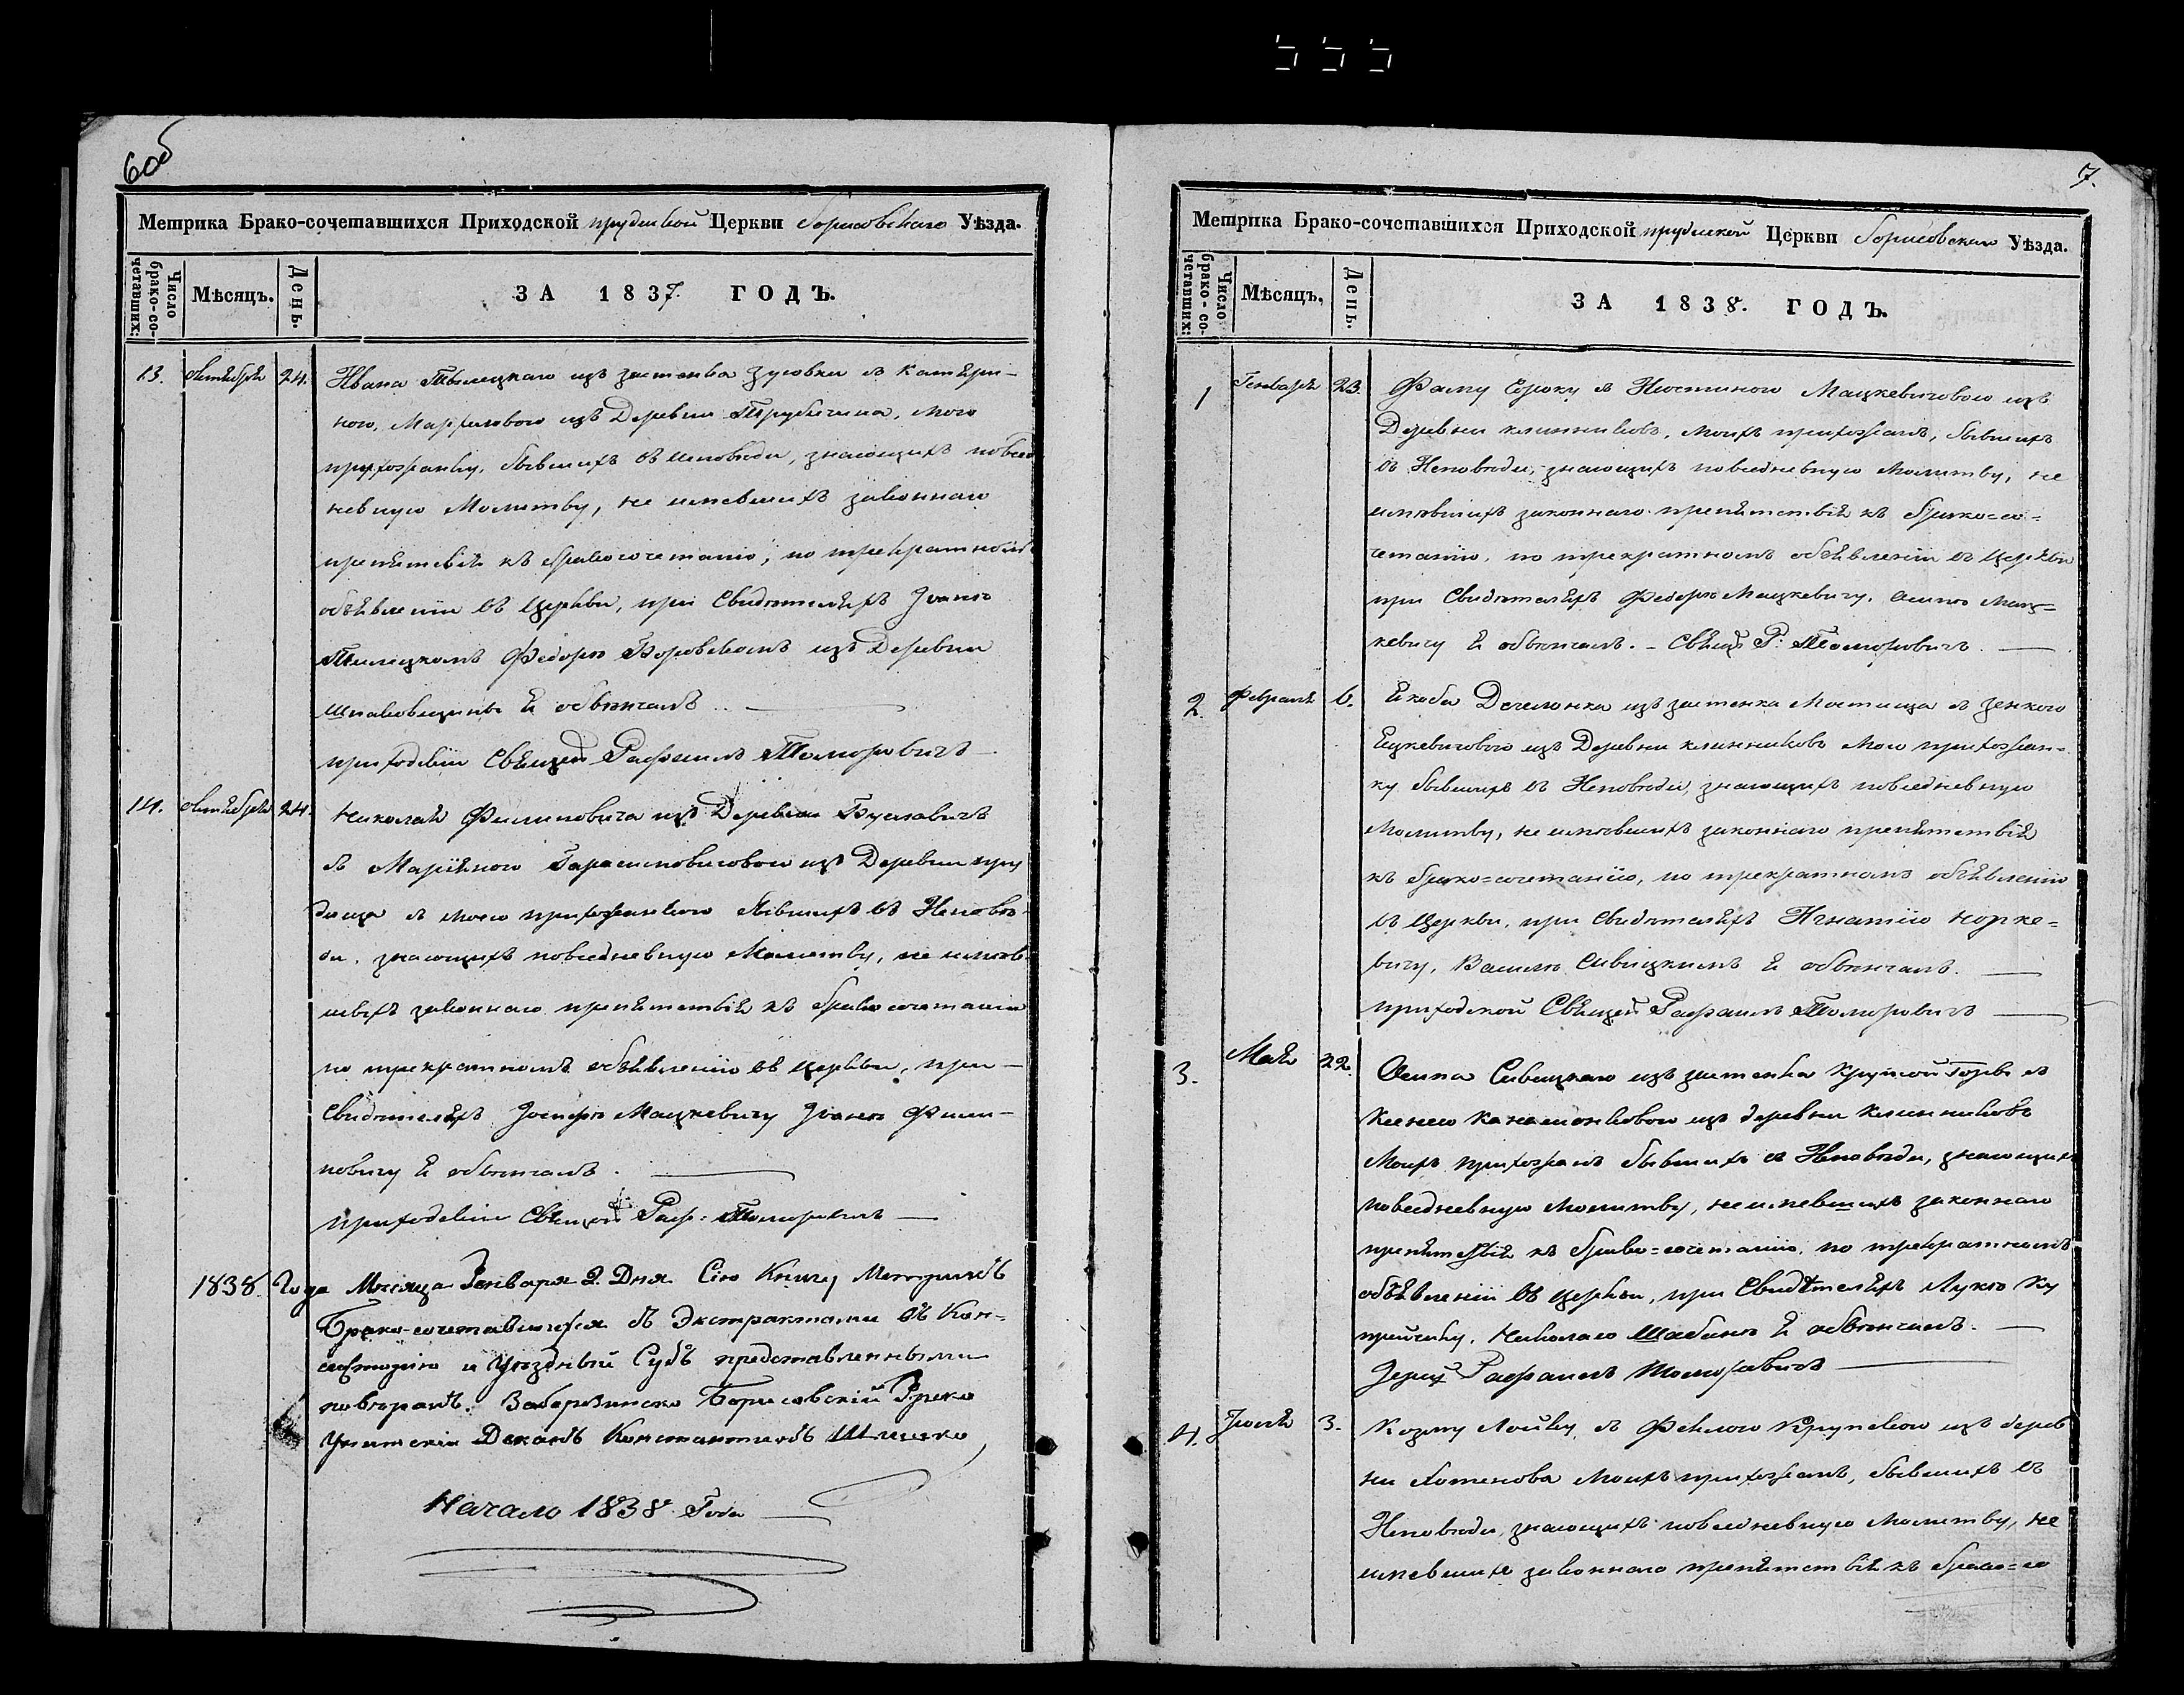 6об
Метрика Брако-сочетавшихся Приходской прудиской Церкви борисовскаго Уѣзда.
Число брако-сочетавших: Мѣсяцъ. День. ЗА 1837. ГОДЪ.
13. октября 24. Ивана Тылецкаго изъ застенка Зусовки съ Катери-
ною, из Деревни мою
прихожанку, бывшихъ въ исповѣди, знающихъ повсед
невную Молитву, не имевшихъ законнаго
препятствія къ бракосочетанію, по трекратномъ
объявленіи въ Церкви, при Свидѣтеляхъ Іванѣ
Тилецкомъ Федорѣ изъ Деревни
я обвѣнчалъ. —
приходскій Священ Рафаилъ
14. октября 24. Николая Филиповича изъ Деревни
съ Маріяною Гарасимовичовою изъ Деревни пру
дища съ моею прихожанкою бывшихъ въ Исповѣ-
ди, знающихъ повседневную Молитву, не имѣв
шихъ законнаго препятствія къ бракосочетанію
по трекратномъ объявленію въ церкви, при —
Свидѣтеляхъ Іосифѣ Мацкевичу Іванѣ Фили-
повичу я обвѣнчалъ. —
приходскій Священ Раф: —
1838. Года Мѣсяца Генваря 2. Дня Сію Книгу Метрикъ
Брако-сочетавшихся съ Экстрактами въ Кон-
систорію и Уѣздный Судъ представленными
повѣрялъ. Заберезинско Борисовскій Греко
Унитскій Деканъ Константинъ
Начало 1838 Года
7.
Метрика Брако-сочетавшихся Приходской прудиской Церкви борисовскаго Уѣзда.
Число брако-сочетавших: Мѣсяцъ. День. ЗА 1838. ГОДЪ.
1 Генваря 23. Фаму съ Мацкевичовою изъ
Деревни клинниковъ, моихъ прихожанъ, бывшихъ
въ Исповѣди, знающихъ повседневную Молитву, не
имѣвшихъ законнаго препятствія къ брако=со=
четанію, по трекратномъ объявленіи въ Церкви
при Свидѣтеляхъ Федорѣ Мацкевичу, Мац=
кевичу я обвѣнчалъ. — Свящ Р: —
2. Февраля 6. Якова изъ застенка Мостища съ
изъ Деревни клинниковъ мою прихожан-
ку бывшихъ въ Исповѣди, знающихъ повседневную
Молитву, не имѣвшихъ законнаго препятствія
къ брако=сочетанію, по трекратномъ объявленію
въ Церкви, при Свидѣтеляхъ Игнатію Норке=
вичу, Василю Сивицкимъ я обвѣнчалъ. —
приходской Священ Рафаилъ —
3. Мая 22. Осипа Сивицкаго изъ застенка Крутой Горы съ
изъ деревни Клинниковъ
Моихъ прихожанъ бывшихъ въ Исповѣди, знающихъ
повседневную Молитву, неимевшихъ законнаго
препятствія къ брако=сочетанію, по трекратномъ
объявленіи въ церкви, при Свидѣтеляхъ Лукѣ Ку
прейчику, Николаю Шабанѣ я обвѣнчалъ. —
Іерей Рафаилъ —
4. Іюля 3. Козму Лойку съ изъ дерев
ни Хотенова Моихъ прихожанъ, бывшихъ въ
Исповѣди, знающихъ повседневную Молитву, не
имевшихъ законнаго препятствія къ брако=со